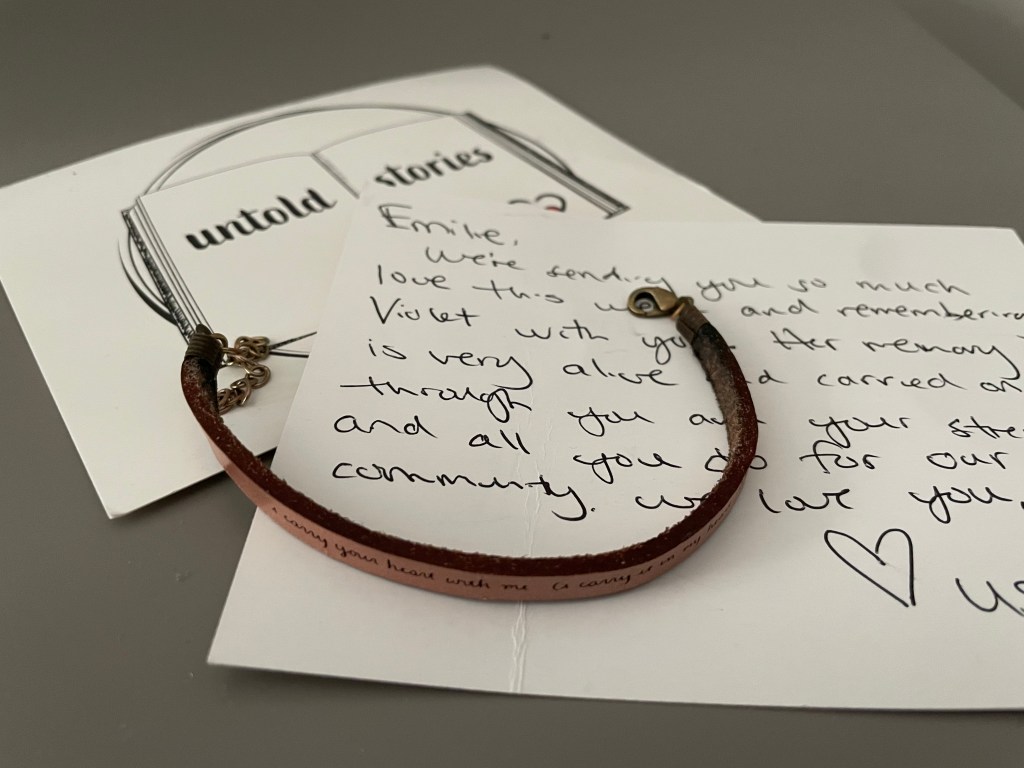 untold stories
Emilie,
We're sending you so much
love this and remembering
Violet with you. Her memory
is very alive and carried on
through you and your stre
and all you do for our
community. we love you,
US
i carry your heart with me (i carry it in my